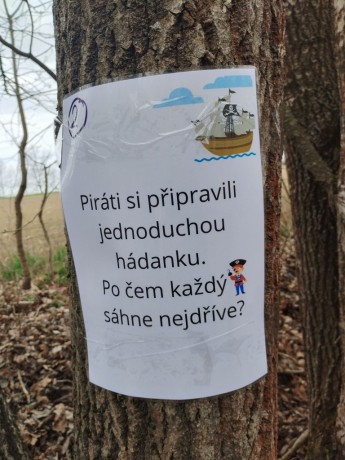 Piráti si připravili
jednoduchou
hádanku.
Po čem každý
sáhne nejdříve?